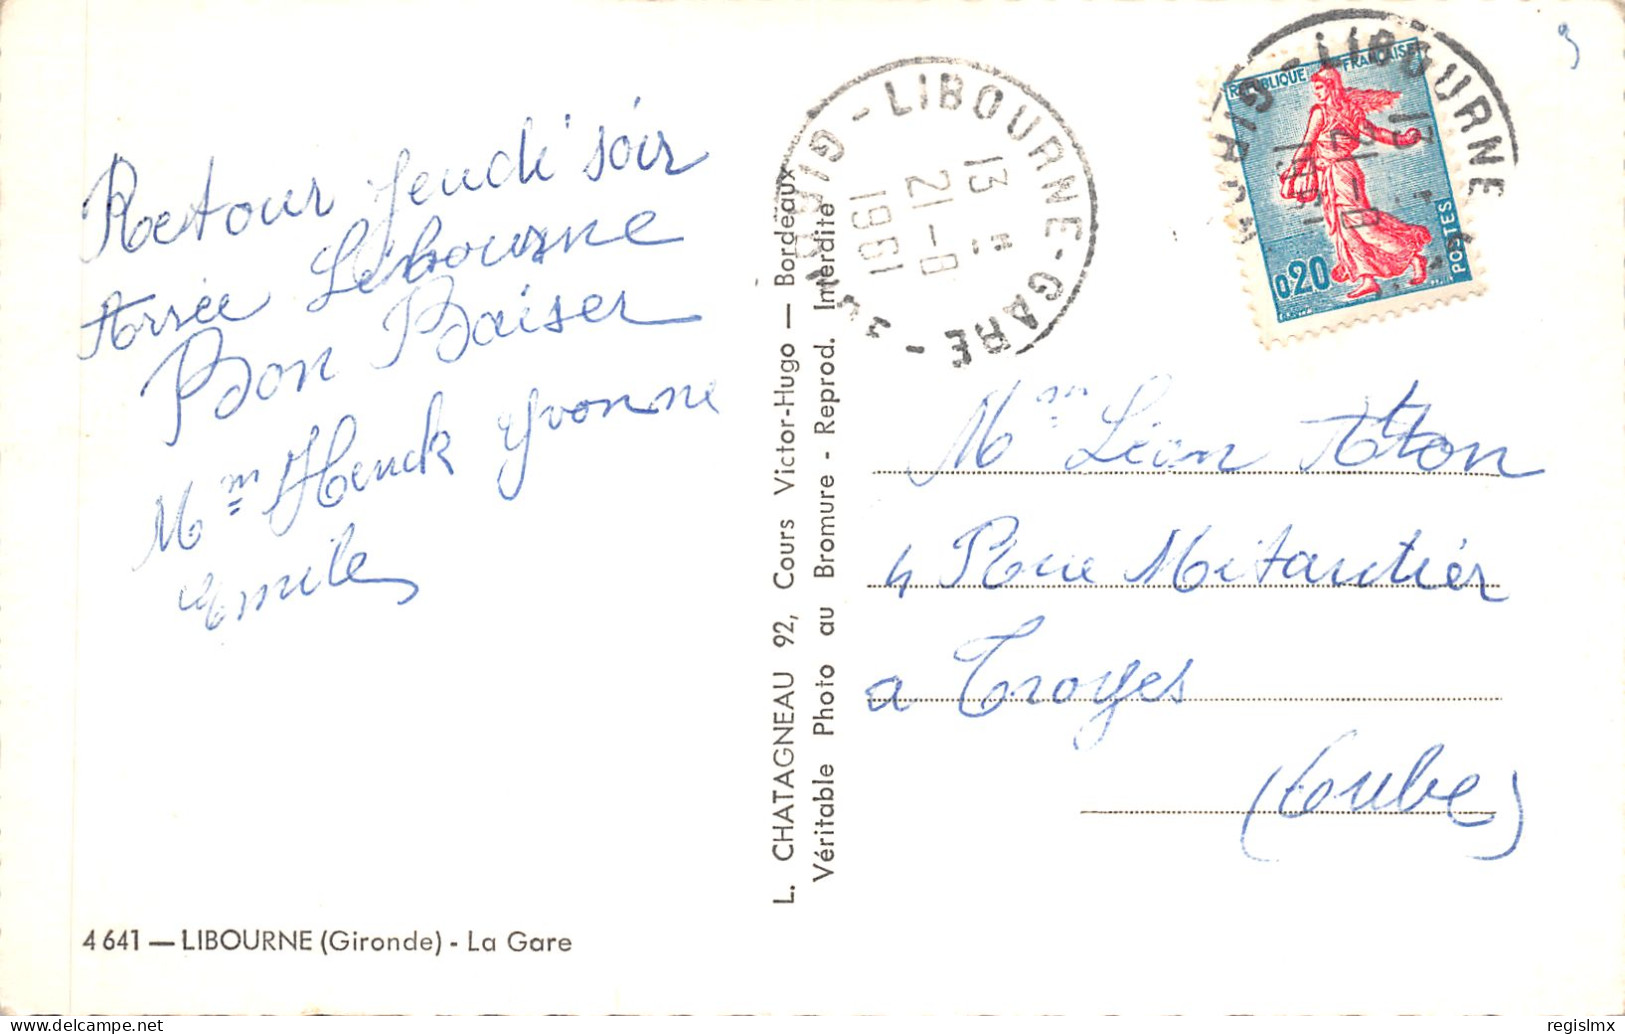 Retour jeudi soir
Arrée Lebourne
Bon Baiser
Mme Henck Yvonne
Emile
4641 — LIBOURNE (Gironde) - La Gare
L. CHATAGNEAU 92, Cours Victor-Hugo — Bordeaux
Véritable Photo au Bromure - Reprod. Interdite
LIBOURNE-GARE - GIRONDE
13 H
21-8
1961
RÉPUBLIQUE FRANÇAISE
0,20
POSTES
LIBOURNE
13
21-8
1961
Mme Léon Atton
4 Rue Mitantier
a Troyes
(Aube)
regislmx